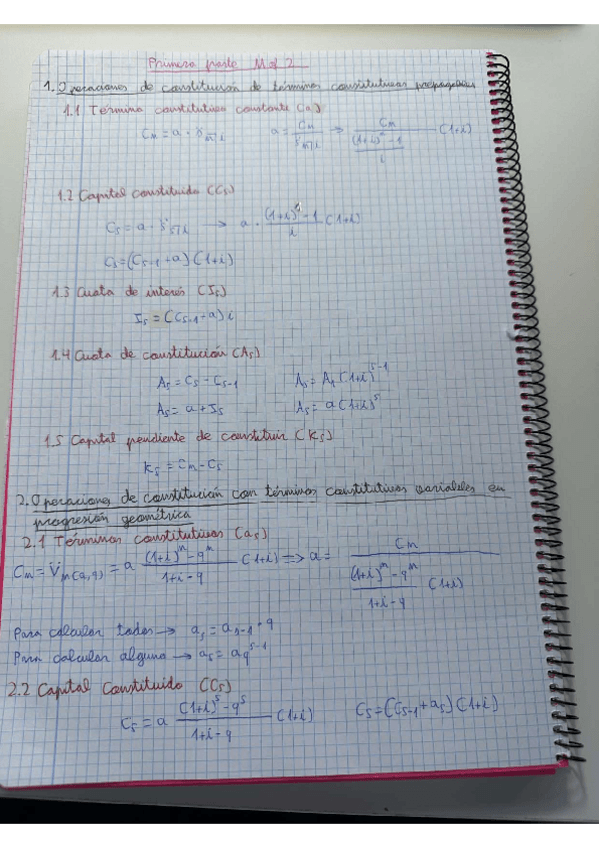 Primera parte Mof 2
1. Operaciones de constitución de términos constitutivos prepagables
1.1 Término constitutivo constante (a)
Cₘ = a · s̈ₙ̅|ᵢ    a = Cₘ / s̈ₙ̅|ᵢ → Cₘ / ( ((1+i)ⁿ - 1) / i (1+i) )
1.2 Capital constituido (Cs)
Cs = a · s̈ₛ̅|ᵢ → a · ((1+i)ˢ - 1) / i (1+i)
Cs = (Cs-1 + a) (1+i)
1.3 Cuota de interés (Is)
Is = (Cs-1 + a) i
1.4 Cuota de constitución (As)
As = Cs - Cs-1    As = A₁ (1+i)ˢ⁻¹
As = a + Is    As = a (1+i)ˢ
1.5 Capital pendiente de constituir (Ks)
Ks = Cm - Cs
2. Operaciones de constitución con términos constitutivos variables en
progresión geométrica
2.1 Términos constitutivos (as)
Cm = V̈n(a,q) = a ((1+i)ⁿ - qⁿ) / (1+i-q) (1+i) => a = Cm / ( ((1+i)ⁿ - qⁿ) / (1+i-q) (1+i) )
Para calcular todos → as = as-1 · q
Para calcular alguno → as = a qˢ⁻¹
2.2 Capital Constituido (Cs)
Cs = a ((1+i)ˢ - qˢ) / (1+i-q) (1+i)    Cs = (Cs-1 + as) (1+i)